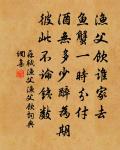 漁父飲誰家去
魚蟹一時分付
酒無多少醉為期
彼此不論錢數
蘇軾漁父漁父飲詞典
詞集